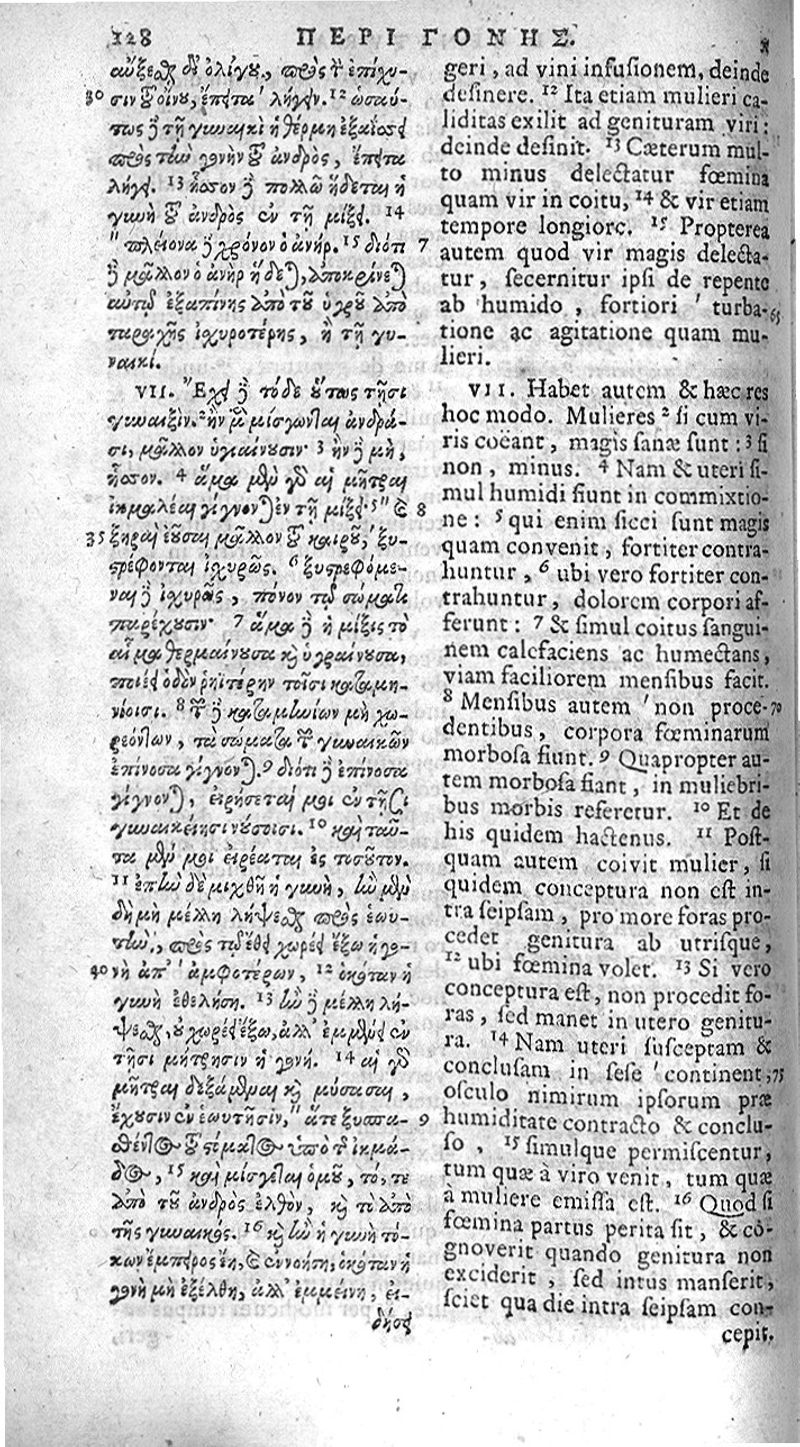 128 ΠΕΡΙ ΓΟΝΗΣ.
αὔξεσθαι δι' ὀλίγου, πρὸς τὴν ἐπίχυ-
30 σιν τοῦ οἴνου, ἔπειτα ' λήγειν. 12 ὡσαύ-
τως δὲ τῇ γυναικὶ ἡ θέρμη ἐξαΐσσει
πρὸς τὴν γονὴν τοῦ ἀνδρὸς, ἔπειτα
λήγει. 13 ἧσσον δὲ πολλῷ ἥδεται ἡ
γυνὴ τοῦ ἀνδρὸς ἐν τῇ μίξει. 14
" πλείονα δὲ χρόνον ὁ ἀνήρ. 15 διότι 7
δὲ μᾶλλον ὁ ἀνὴρ ἥδεται, ἀποκρίνεται
αὐτῷ ἐξαπίνης ἀπὸ τοῦ ὑγροῦ ἀπὸ
ταραχῆς ἰσχυροτέρης, ἢ τῇ γυ-
ναικί.
VII. Ἔχει δὲ τόδε οὕτως τῇσι
γυναιξίν. 2 ἢν μὲν μίσγωνται ἀνδρά-
σι, μᾶλλον ὑγιαίνουσιν· 3 ἢν δὲ μὴ,
ἧσσον. 4 ἅμα μὲν γὰρ αἱ μῆτραι
ἰκμαλέαι γίγνονται ἐν τῇ μίξει· 5 " καὶ 8
35 ξηραὶ ἐοῦσαι μᾶλλον τοῦ καιροῦ, ' ξυ-
στρέφονται ἰσχυρῶς. 6 ξυστρεφόμε-
ναι δὲ ἰσχυρῶς, πόνον τῷ σώματι
παρέχουσιν· 7 ἅμα δὲ ἡ μίξις τὸ
αἷμα θερμαίνουσα καὶ ὑγραίνουσα,
ποιέει ὁδὸν ῥηϊτέρην τοῖσι καταμη-
νίοισι. 8 τῶν δὲ καταμηνίων μὴ χω-
ρεόντων, τὰ σώματα τῶν γυναικῶν
ἐπίνοσα γίγνονται. 9 διότι δὲ ἐπίνοσα
γίγνονται, εἰρήσεταί μοι ἐν τῇσι
γυναικείῃσι νούσοισι. 10 καὶ ταῦ-
τα μέν μοι εἰρέαται ἐς τοσοῦτον.
11 ἐπὴν δὲ μιχθῇ ἡ γυνὴ, ἢν μὲν
δὴ μὴ μέλλῃ λήψεσθαι πρὸς ἑωυ-
τὴν, πρὸς τῷ ἔθει χωρέει ἔξω ἡ γο-
40 νὴ ἀπ' ' ἀμφοτέρων, 12 ὁκόταν ἡ
γυνὴ ἐθελήσῃ. 13 ἢν δὲ μέλλῃ λή-
ψεσθαι, οὐ χωρέει ἔξω, ἀλλ' ἐμμένει ἐν
τῇσι μήτρῃσιν ἡ γονή. 14 αἱ γὰρ
μῆτραι δεξάμεναι καὶ μύσασαι,
ἔχουσιν ἐν ἑωυτῇσιν, " ἅτε ξυσπα- 9
σθέντος τοῦ στόματος ὑπὸ τῆς ἰκμά-
δος, 15 καὶ μίσγεται ὁμοῦ, τό, τε
ἀπὸ τοῦ ἀνδρὸς ἐλθὸν, καὶ τὸ ἀπὸ
τῆς γυναικός. 16 καὶ ἢν ἡ γυνὴ τό-
κων ἔμπειρος ἔῃ, καὶ ἐννοήσῃ, ὁκόταν ἡ
γονὴ μὴ ἐξέλθῃ, ἀλλ' ἐμμείνῃ, εἰ-
δήσει
geri, ad vini infusionem, deinde
desinere. 12 Ita etiam mulieri ca-
liditas exilit ad genituram viri:
deinde desinit. 13 Cæterum mul-
to minus delectatur fœmina
quam vir in coitu, 14 & vir etiam
tempore longiore. 15 Propterea
autem quod vir magis delecta-
tur, secernitur ipsi de repente
ab humido, fortiori ' turba- 65
tione ac agitatione quam mu-
lieri.
VII. Habet autem & hæc res
hoc modo. Mulieres 2 si cum vi-
ris coëant, magis sanæ sunt: 3 si
non, minus. 4 Nam & uteri si-
mul humidi fiunt in commixtio-
ne: 5 qui enim sicci sunt magis
quam convenit, fortiter contra-
huntur, 6 ubi vero fortiter con-
trahuntur, dolorem corpori af-
ferunt: 7 & simul coitus sangui-
nem calefaciens ac humectans,
viam faciliorem mensibus facit.
8 Mensibus autem ' non proce- 70
dentibus, corpora fœminarum
morbosa fiunt. 9 Quapropter au-
tem morbosa fiant, in muliebri-
bus morbis referetur. 10 Et de
his quidem hactenus. 11 Post-
quam autem coivit mulier, si
quidem conceptura non est in-
tra seipsam, pro more foras pro-
cedet genitura ab utrisque,
12 ubi fœmina volet. 13 Si vero
conceptura est, non procedit fo-
ras, sed manet in utero genitu-
ra. 14 Nam uteri susceptam &
conclusam in sese ' continent, 75
osculo nimirum ipsorum præ
humiditate contracto & conclu-
so, 15 simulque permiscentur,
tum quæ à viro venit, tum quæ
à muliere emissa est. 16 Quod si
fœmina partus perita sit, & co-
gnoverit quando genitura non
exciderit, sed intus manserit,
sciet qua die intra seipsam con-
cepit.